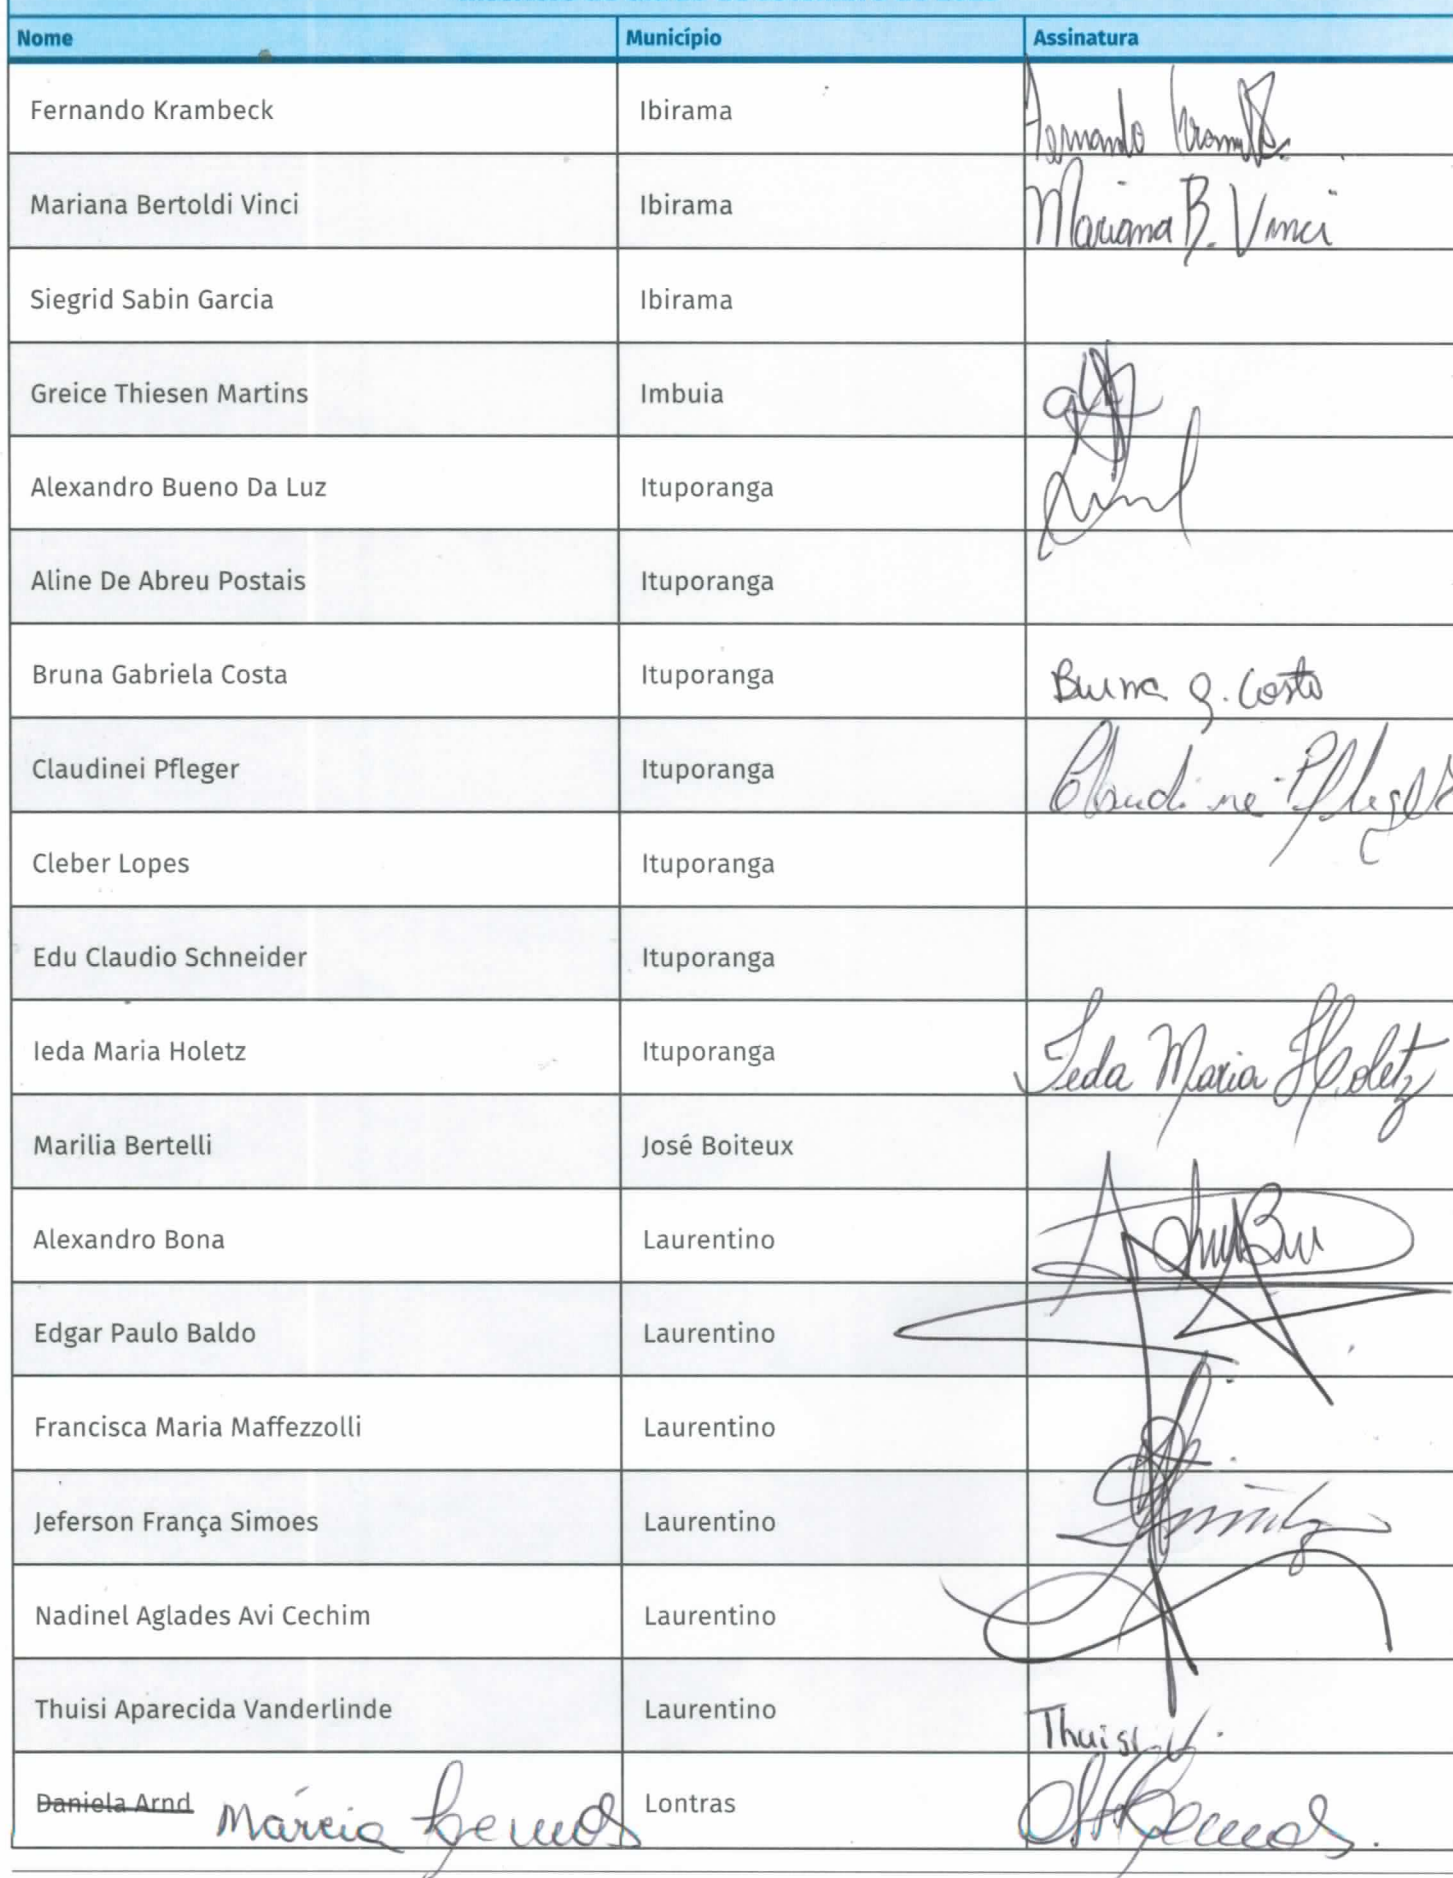 Nome Município Assinatura
Fernando Krambeck Ibirama Fernando
Mariana Bertoldi Vinci Ibirama Mariana B. Vinci
Siegrid Sabin Garcia Ibirama
Greice Thiesen Martins Imbuia
Alexandro Bueno Da Luz Ituporanga
Aline De Abreu Postais Ituporanga
Bruna Gabriela Costa Ituporanga Bruna G. Costa
Claudinei Pfleger Ituporanga Claudinei Pfleger
Cleber Lopes Ituporanga
Edu Claudio Schneider Ituporanga
Ieda Maria Holetz Ituporanga Ieda Maria Holetz
Marilia Bertelli José Boiteux
Alexandro Bona Laurentino
Edgar Paulo Baldo Laurentino
Francisca Maria Maffezzolli Laurentino
Jeferson França Simoes Laurentino
Nadinel Aglades Avi Cechim Laurentino
Thuisi Aparecida Vanderlinde Laurentino Thuisi V.
Daniela Arnd Márcia Lemos Lontras